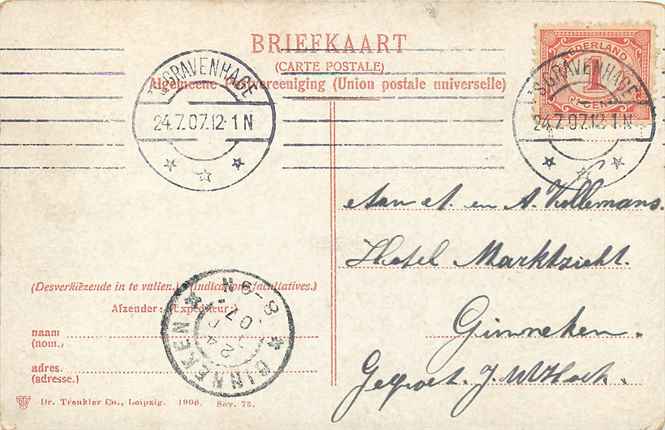 BRIEFKAART
(CARTE POSTALE)
Algemeene Postvereeniging (Union postale universelle)
'S GRAVENHAGE
24.7.07.12-1N
NEDERLAND
1
CENT
'S GRAVENHAGE
24.7.07.12-1N
Aan A. en A. Vellemans.
Hotel Marktzicht.
Ginneken.
(Desverkiezende in te vullen.) (Indications facultatives.)
Afzender: (Expéditeur:)
naam
(nom.)
adres.
(adresse.)
GINNEKEN
8-9N
24
07
Dr. Trenkler Co., Leipzig. 1906. Sev. 75.